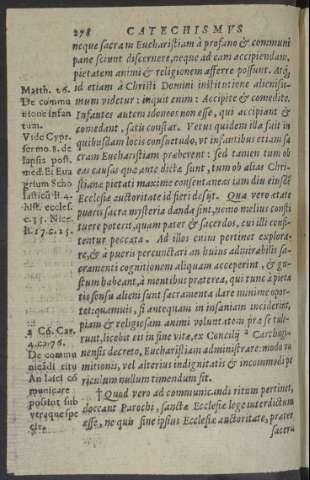 278 CATECHISMVS
neque sacram Eucharistiam à profano & communi
pane sciunt discernere, neque ad eam accipiendam,
pietatem animi & religionem afferre possunt. Atq́;
id etiam à Christi Domini institutione alienissi-
mum videtur: inquit enim: Accipite & comedite.
Infantes autem idoneos non esse, qui accipiant &
comedant, satis constat. Vetus quidem illa fuit in
quibusdam locis consuetudo, vt infantibus etiam sa
cram Eucharistiam præberent: sed tamen tum ob
eas causas quæ ante dictæ sunt, tum ob alias Chri-
stianæ pietati maxime consentaneas iam diu eiusdẽ
Ecclesiæ auctoritate id fieri desijt. Qua vero ætate
pueris sacra mysteria danda sint, nemo melius consti
tuere poterit, quam pater & sacerdos, cui illi confi-
tentur peccata. Ad illos enim pertinet explora-
re, & a pueris percunctari an huius admirabilis sa-
cramenti cognitionem aliquam acceperint, & gu-
stum habeant, à mentibus præterea, qui tunc à pieta
tis sensu alieni sunt sacramenta dare minime opor-
tet: quamuis, si antequam in insaniam inciderint,
piam & religiosam animi voluntatem præ se tule-
runt, licebit eis in fine vitæ, ex Concilij ² Carthagi-
nensis decreto, Eucharistiam administrare: modo vo
mitionis, vel alterius indignitatis & incommodi pe
riculum nullum timendum sit.
† Quod vero ad communicandi ritum pertinet,
doceant Parochi, sanctæ Ecclesiæ lege interdictum
esse, ne quis sine ipsius Ecclesiæ auctoritate, præter
sacerd
Matth. 26.
De commu
nione infan
tum.
Vide Cypr.
sermo. 8. de
lapsis post.
med. Et Eua
grium Scho
lasticũ li. 4.
hist. ecclef.
c. 35. Nice.
li. 17. c. 25.
2 Cõ. Car.
4. ca. 76.
De commu
nicãdi ritu
An laici cõ
municare
possint sub
vtraque spe
cie.